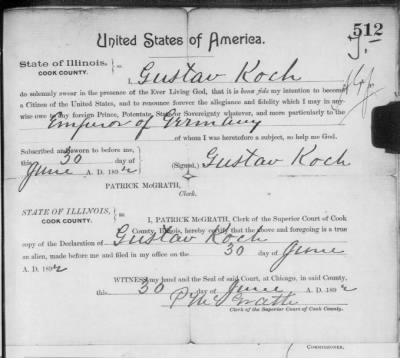 512
J.
United States of America.
State of Illinois, } ss
COOK COUNTY.
I, Gustav Koch
do solemnly swear in the presence of the Ever Living God, that it is bona fide my intention to become
a Citizen of the United States, and to renounce forever the allegiance and fidelity which I may in any-
wise owe to any foreign Prince, Potentate, State or Sovereignty whatever, and more particularly to the
Emperor of Germany
of whom I was heretofore a subject, so help me God.
Subscribed and sworn to before me,
this 30 day of
June A. D. 1892
(Signed,) Gustav Koch
PATRICK McGRATH,
Clerk.
STATE OF ILLINOIS, } ss
COOK COUNTY.
I, PATRICK McGRATH, Clerk of the Superior Court of Cook
County, Illinois, hereby certify that the above and foregoing is a true
copy of the Declaration of Gustav Koch
an alien, made before me and filed in my office on the 30 day of June
A. D. 1892
WITNESS my hand and the Seal of said Court, at Chicago, in said County.
this 30 day of June A. D. 1892
P McGrath
Clerk of the Superior Court of Cook County.
COMMISSIONER.